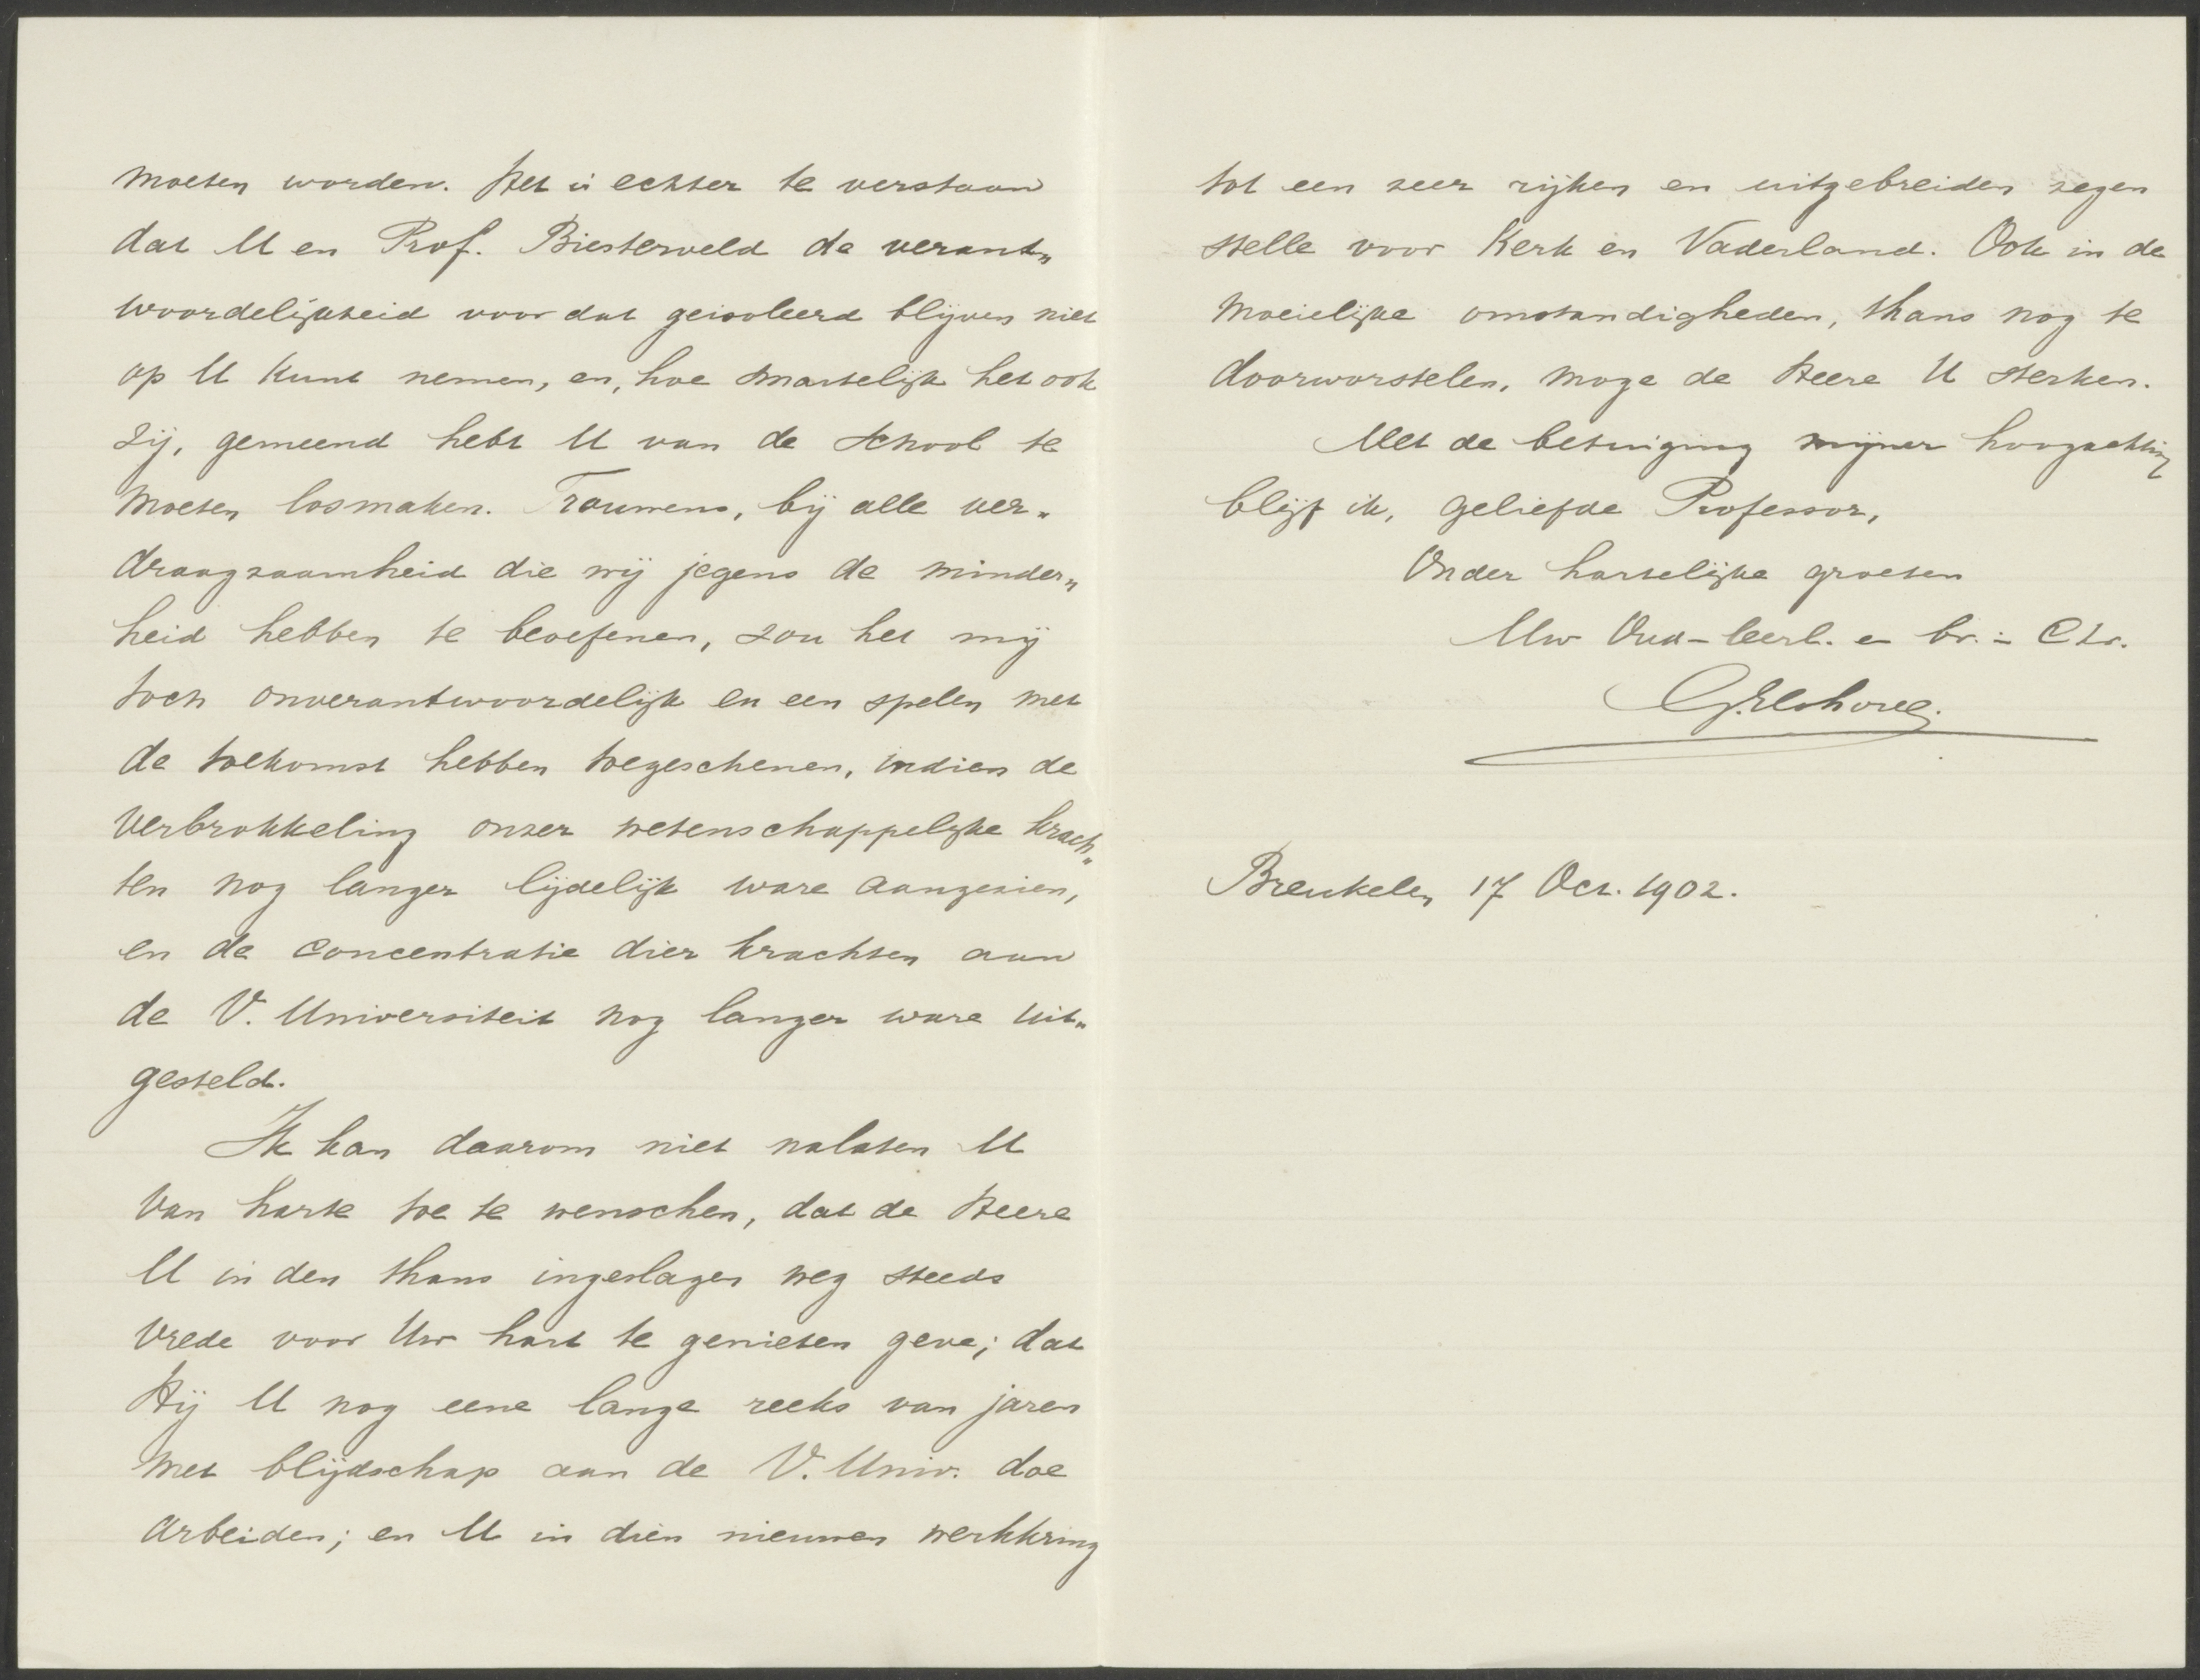 moeten worden. Het is echter te verstaan
dat U en Prof. Biesterveld de verant„
woordelijkheid voor dat geisoleerd blijven niet
op U kunt nemen, en, hoe smartelijk het ook
zij, gemeend hebt U van de School te
moeten losmaken. Trouwens, bij alle ver„
draagzaamheid die wij jegens de minder„
heid hebben te beoefenen, zou het mij
toch onverantwoordelijk en een spelen met
de toekomst hebben toegeschenen, indien de
verbrokkeling onzer wetenschappelijke krach„
ten nog langer lijdelijk ware aangezien,
en de concentratie dier krachten aan
de V. Universiteit nog langer ware uit„
gesteld.
Ik kan daarom niet nalaten U
van harte toe te wenschen, dat de Heere
U in den thans ingeslagen weg steeds
vrede voor Uw hart te genieten geve; dat
Hij U nog eene lange reeks van jaren
met blijdschap aan de V. Univ. doe
arbeiden; en U in dien nieuwen werkkring
tot een zeer rijken en uitgebreiden zegen
stelle voor Kerk en Vaderland. Ook in de
moeielijke omstandigheden, thans nog te
doorworstelen, moge de Heere U sterken.
Met de betuiging mijner hoogachting
blijf ik, geliefde Professor,
Onder hartelijke groeten
Uw Oud-leerl. en br. in Chr.
G. Elshove.
Breukelen 17 Oct. 1902.